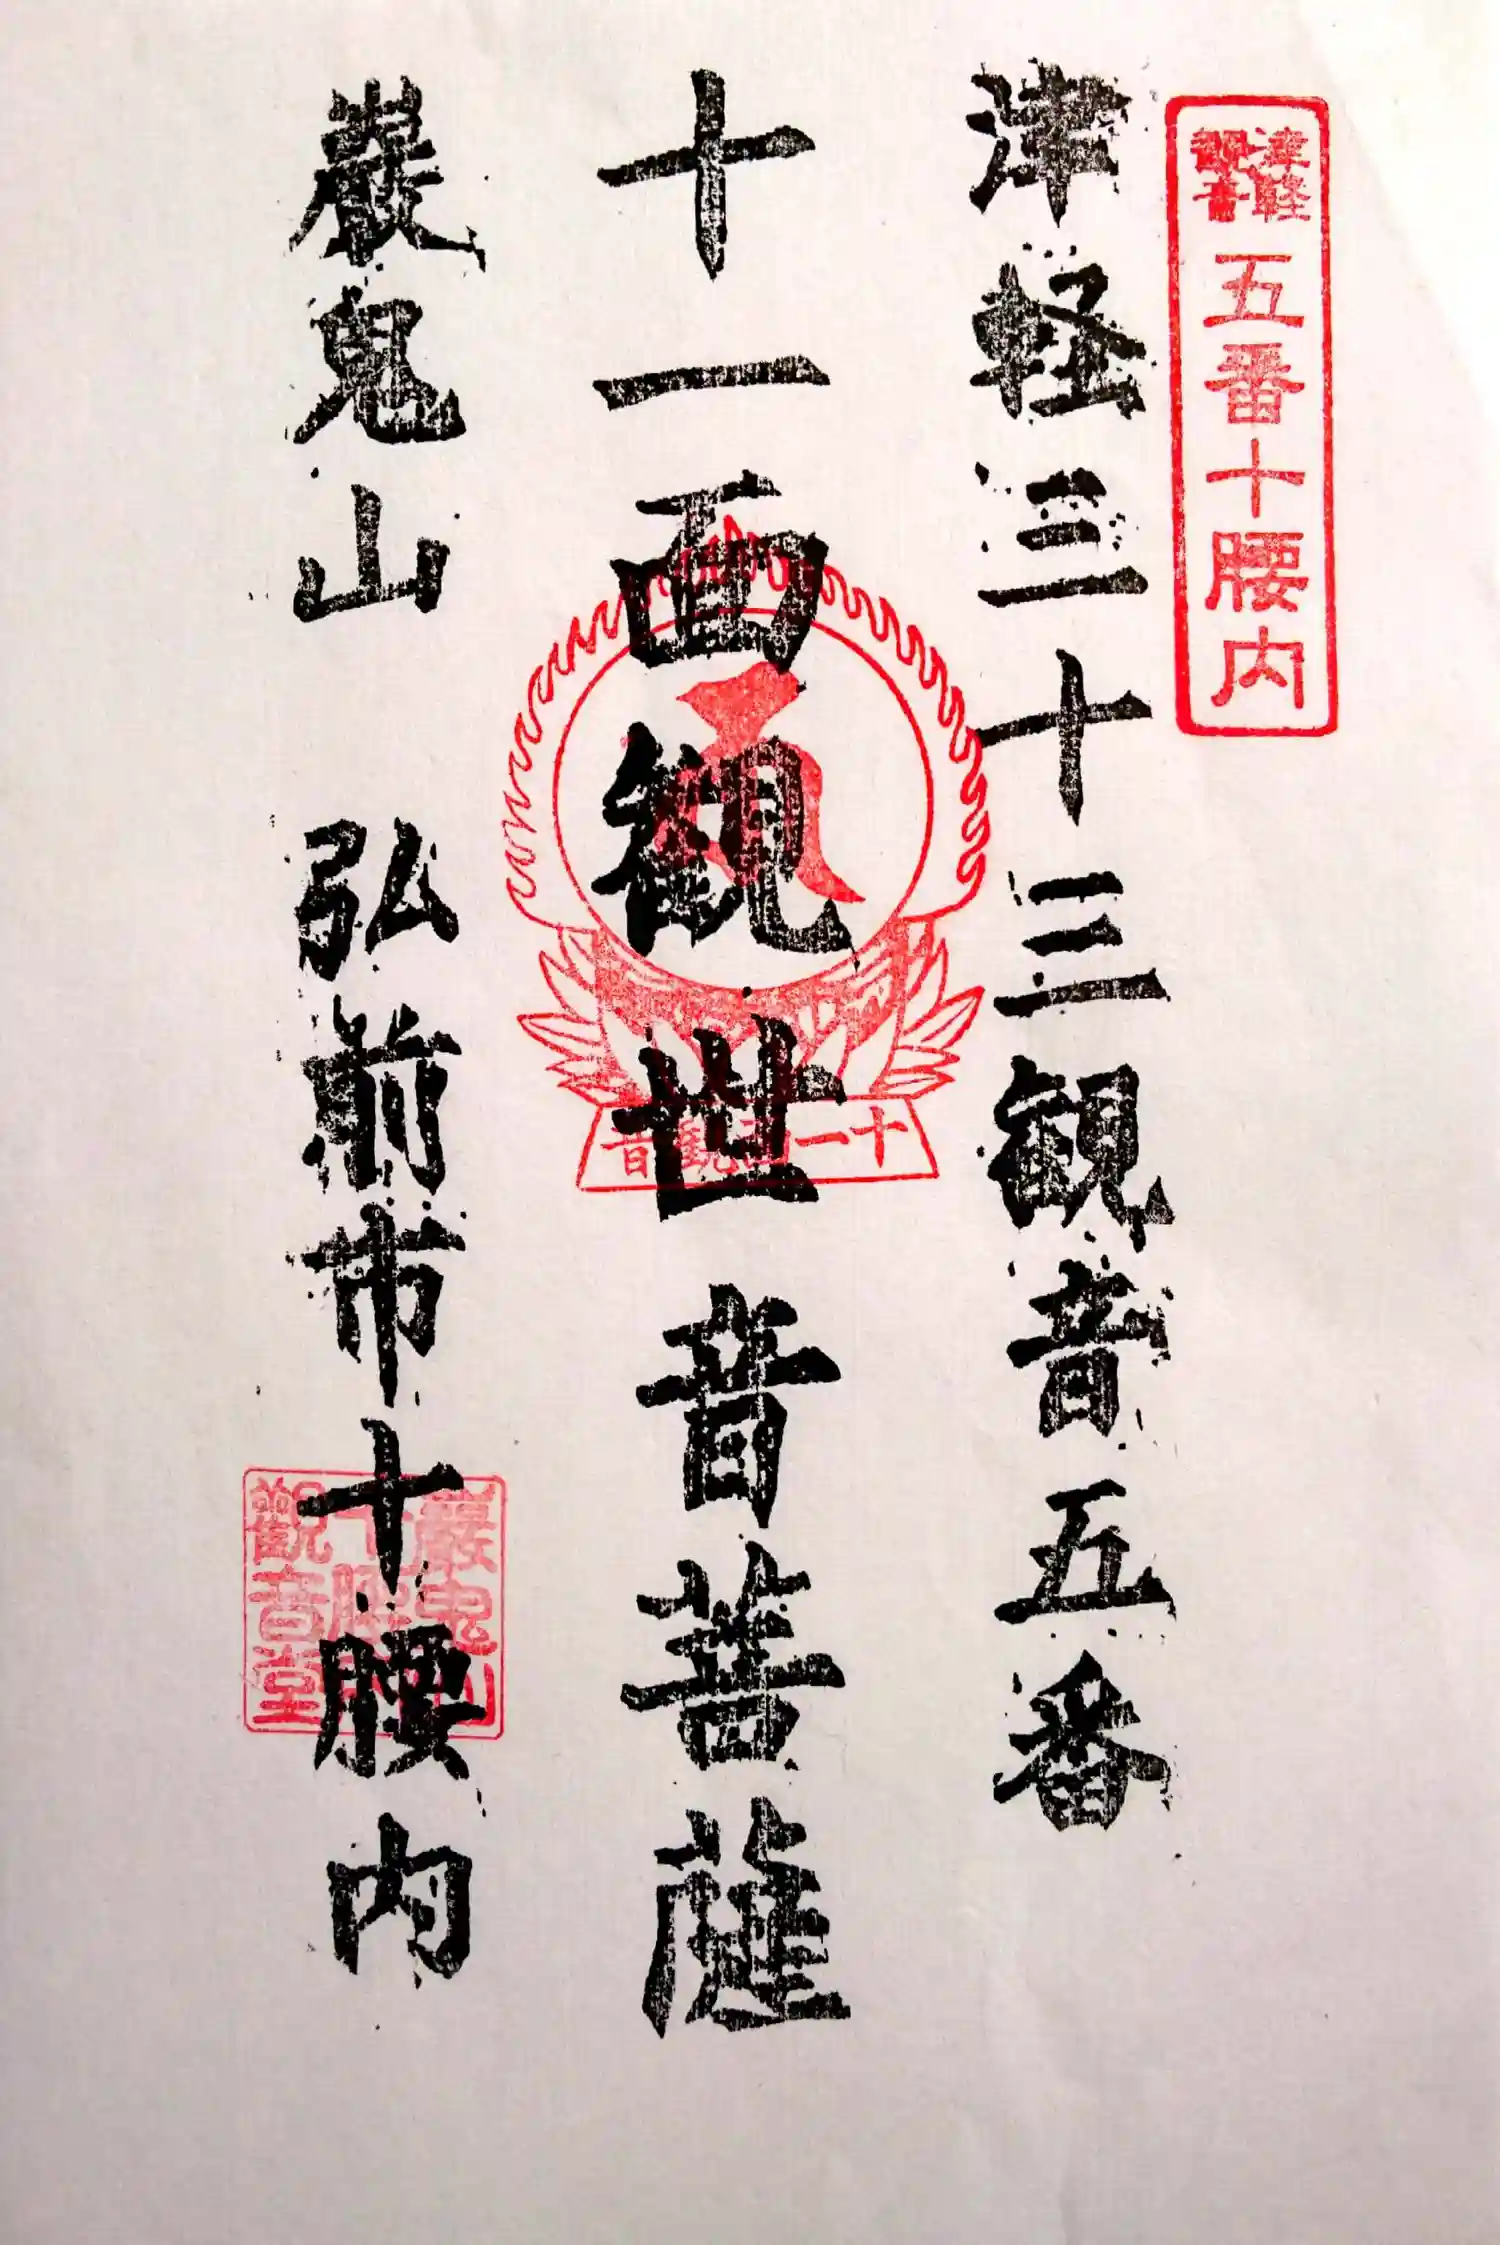 津軽
観音
五番十腰内
津軽三十三観音五番
十一面観世音菩薩
十一面観音
巌鬼山 弘前市十腰内
巖鬼山
十腰内
觀音堂